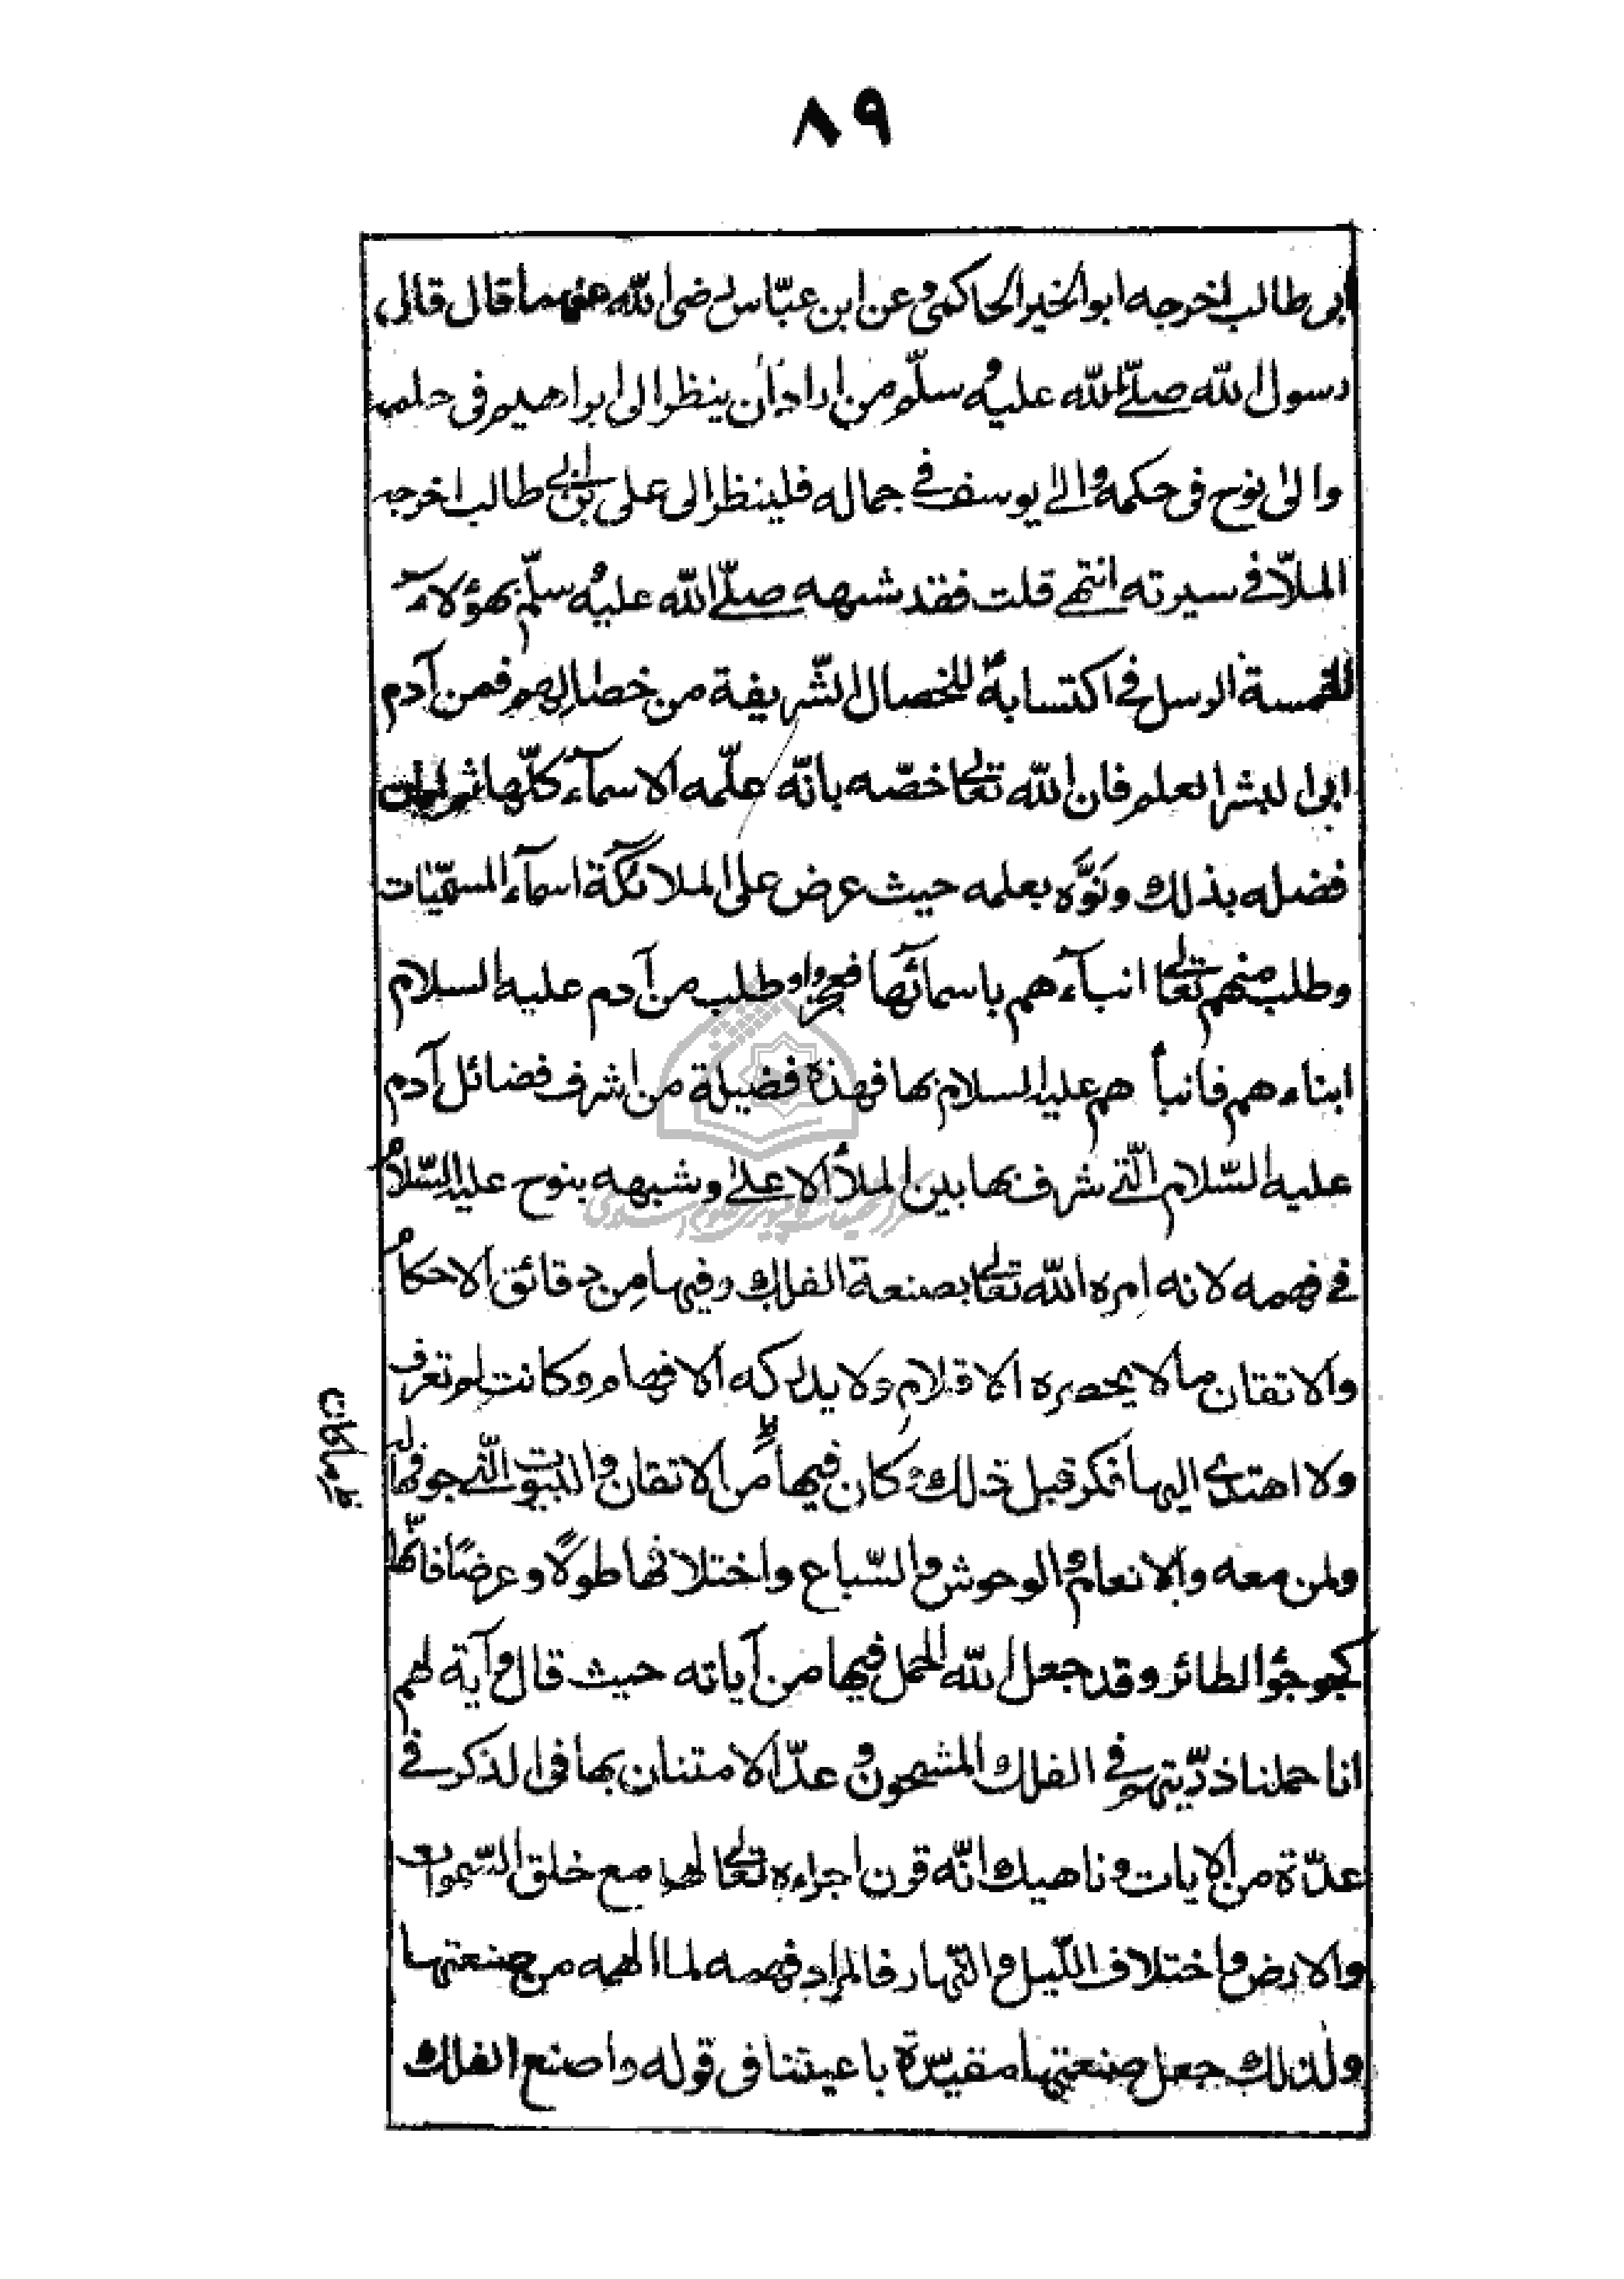 ٨٩
ابى طالب اخرجه ابو الخير الحاكمى وعن ابن عبّاس رضى الله عنهما قال قال
رسول الله صلّى الله عليه وسلّم من اراد أن ينظر الى ابراهيم فى حلمه
والى نوح فى حكمه والى يوسف فى جماله فلينظر الى على بن ابى طالب اخرجه
الملّا فى سيرته انتهى قلت فقد شبهه صلّى الله عليه وسلّم بهؤلاء
الخمسة الرسل فى اكتسابه للخصال الشّريفة من خصالهم فمن آدم
ابى البشر العلم فان الله تعالى خصّه بانّه علّمه الاسمآء كلّها ثم ابان
فضله بذلك ونَوَّه بعلمه حيث عرض على الملائكة اسمآء المسمّيات
وطلب منهم تعالى انبآءهم باسمآئها فعجزوا وطلب من آدم عليه السلام
ابناءهم فانبأ هم عليه السلام بها فهذه فضيلة من اشرف فضائل آدم
عليه السّلام الّتى شرف بها بين الملأ الاعلى وشبهه بنوح عليه السّلام
فى فهمه لانه امره الله تعالى بصنعة الفلك وفيها من دقائق الاحكام
والاتقان مالا يحصره الاقلام ولا يدركه الافهام وكانت لم تعرف
ولا اهتدى اليها فكر قبل ذلك وكان فيها من الاتقان والبيوت الّتى جوفها له
ولمن معه والانعام والوحوش والسّباع واختلافها طولًا وعرضًا فانّها
كجوجؤ الطائر وقد جعل الله الحمل فيها من آياته حيث قال وآية لهم
انا حملنا ذرّيتهم فى الفلك المشحون وعدّ الامتنان بها فى الذكر فى
عدّة من الايات وناهيك انّه قرن اجراءه تعالى لها مع خلق السّموات
والارض واختلاف اللّيل والنّهار فالمراد فهمه لما الهمه من صنعتها
ولذلك جعل صنعتها مقيّدة باعيننا فى قوله واصنع الفلك